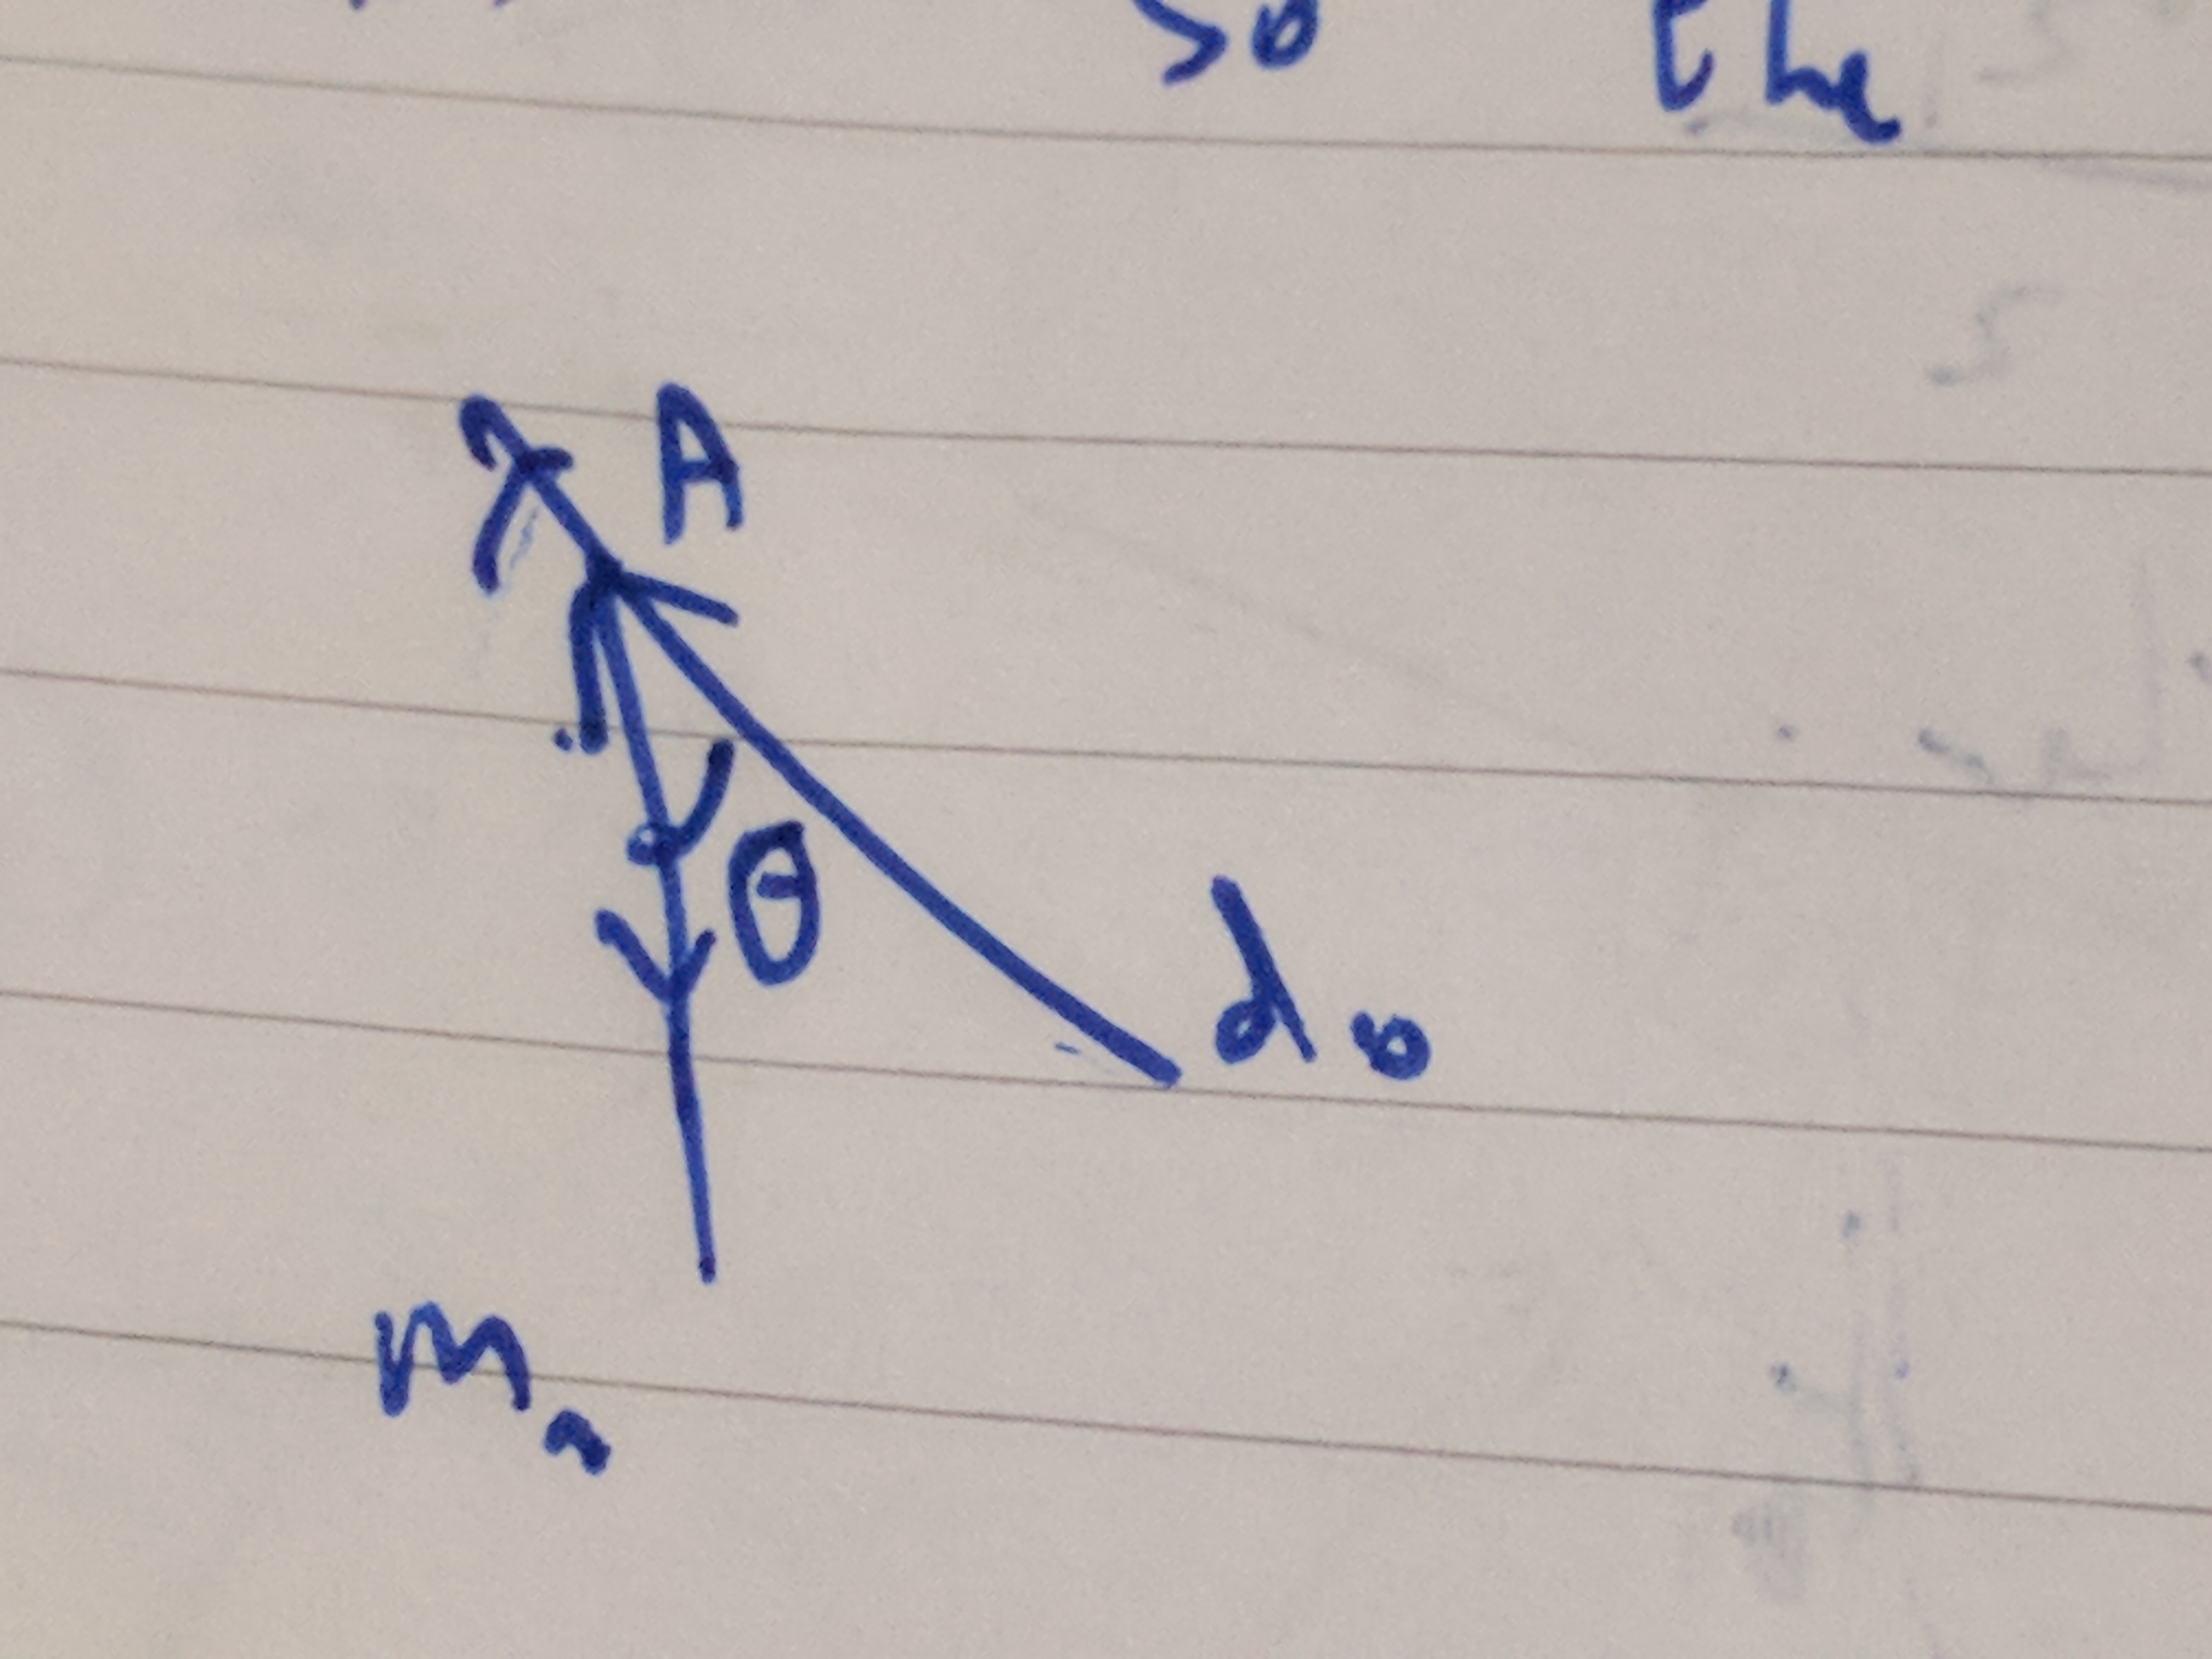 so the
A
θ
do
m